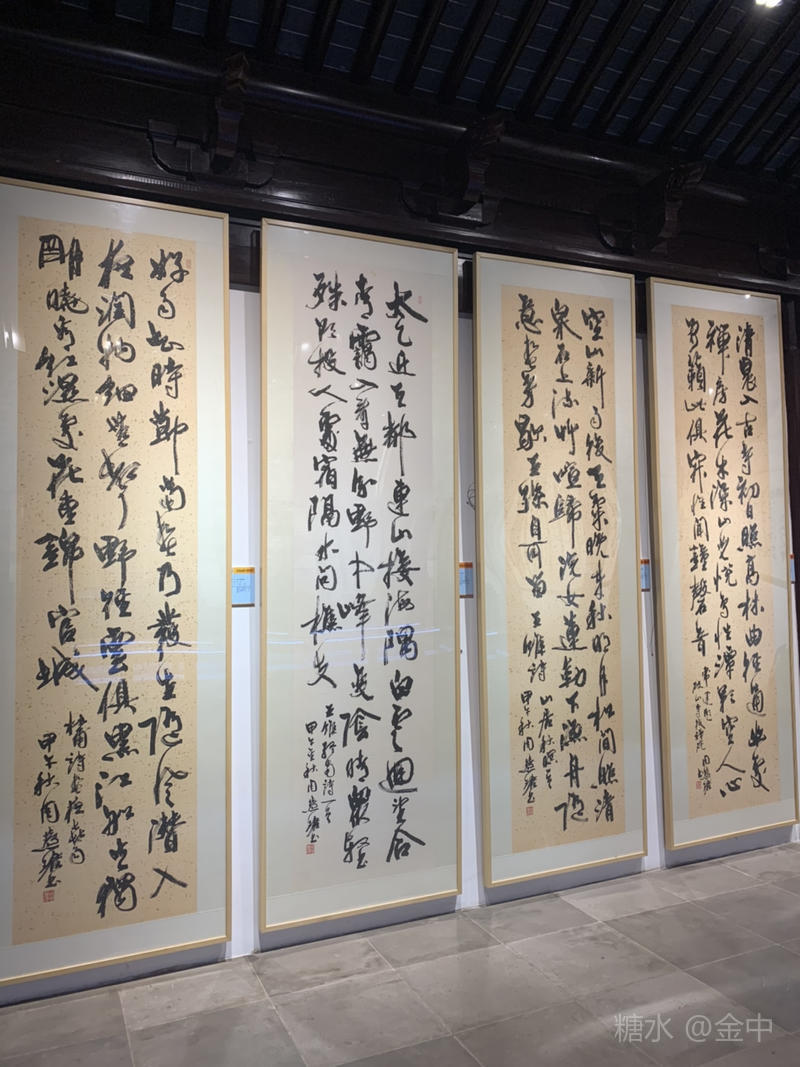 清晨入古寺初日照高林曲徑通幽處
禪房花木深山光悅鳥性潭影空人心
萬籟此俱寂惟聞鐘磬音
常建題
破山寺後禪院
空山新雨後天氣晚來秋明月松間照清
泉石上流竹喧歸浣女蓮動下漁舟隨
意春芳歇王孫自可留
王維詩
山居秋暝
甲午秋周
太乙近天都連山接海隅白雲迴望合
青靄入看無分野中峰變陰晴眾壑
殊欲投人處宿隔水問樵夫
王維終南詩一首
甲午秋周
好雨知時節當春乃發生隨風潛入
夜潤物細無聲野徑雲俱黑江船火獨
明曉看紅濕處花重錦官城
杜甫詩春夜喜雨
甲午秋周
糖水 @金中